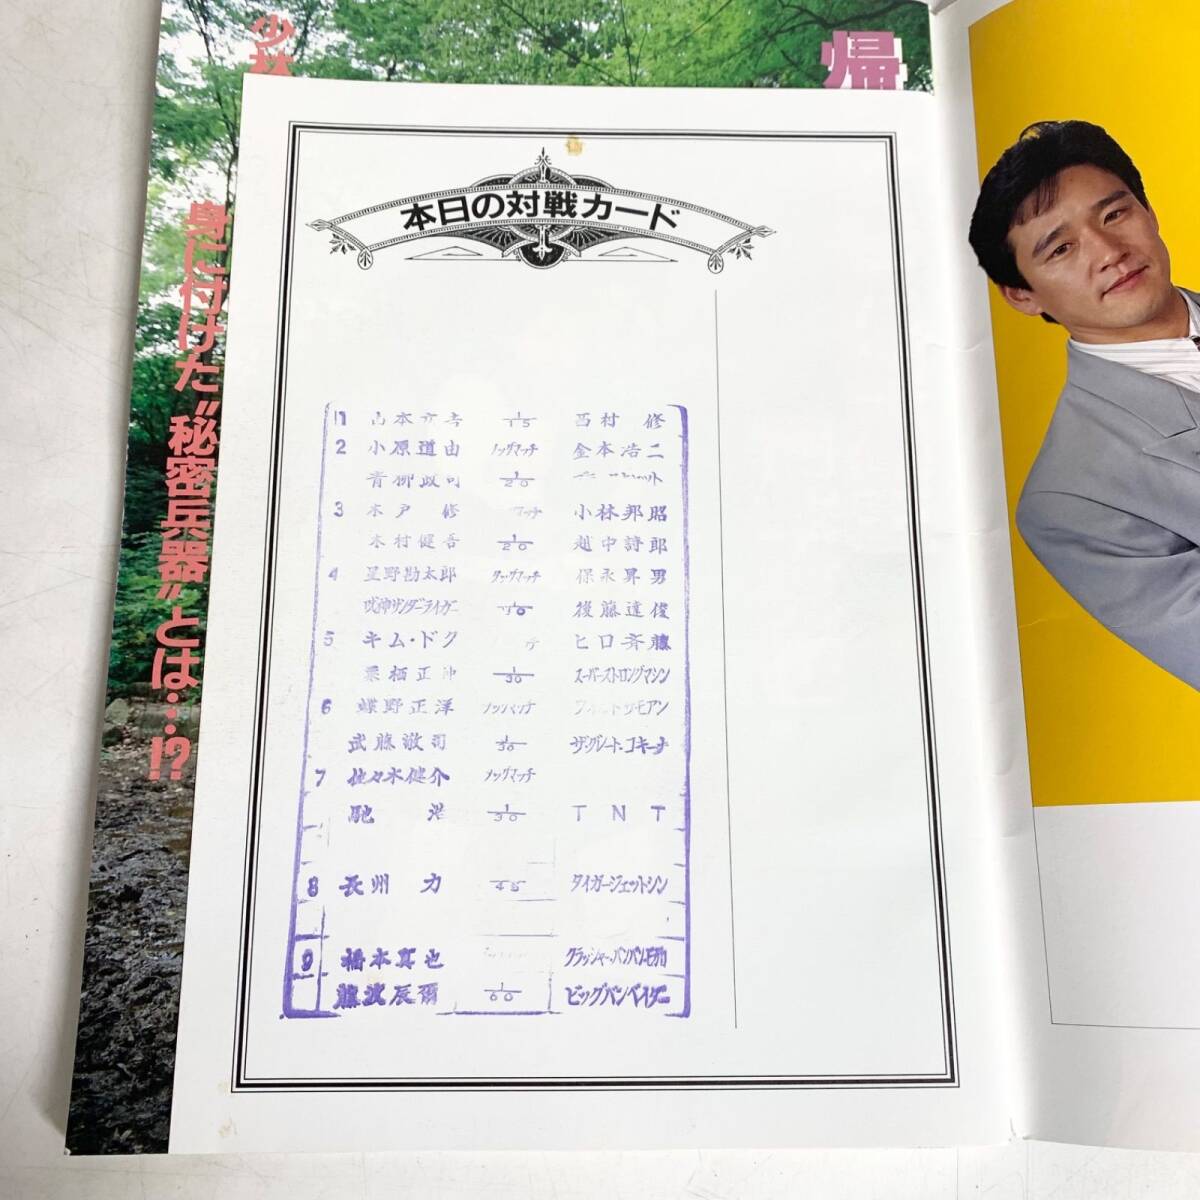 帰
少林
身に付けた"秘密兵器"とは…!?
本日の対戦カード
1 山本 1/15 西村 修
2 小原道由 タッグマッチ 金本浩二
青柳政司 1/20
3 木戸 修 マッチ 小林邦昭
木村健吾 1/20 越中詩郎
4 星野勘太郎 タッグマッチ 保永昇男
獣神サンダーライガー 後藤達俊
5 キム・ドク チ ヒロ斉藤
栗栖正伸 1/30 スーパーストロングマシン
6 蝶野正洋 タッグマッチ ワイルド・サモアン
武藤敬司 1/30 ザ・グレート・コキーナ
7 佐々木健介 タッグマッチ
馳 浩 1/30 TNT
8 長州 力 1/45 タイガージェットシン
9 橋本真也 クラッシャー・バンバンビガロ
藤波辰爾 1/60 ビッグバンベイダー